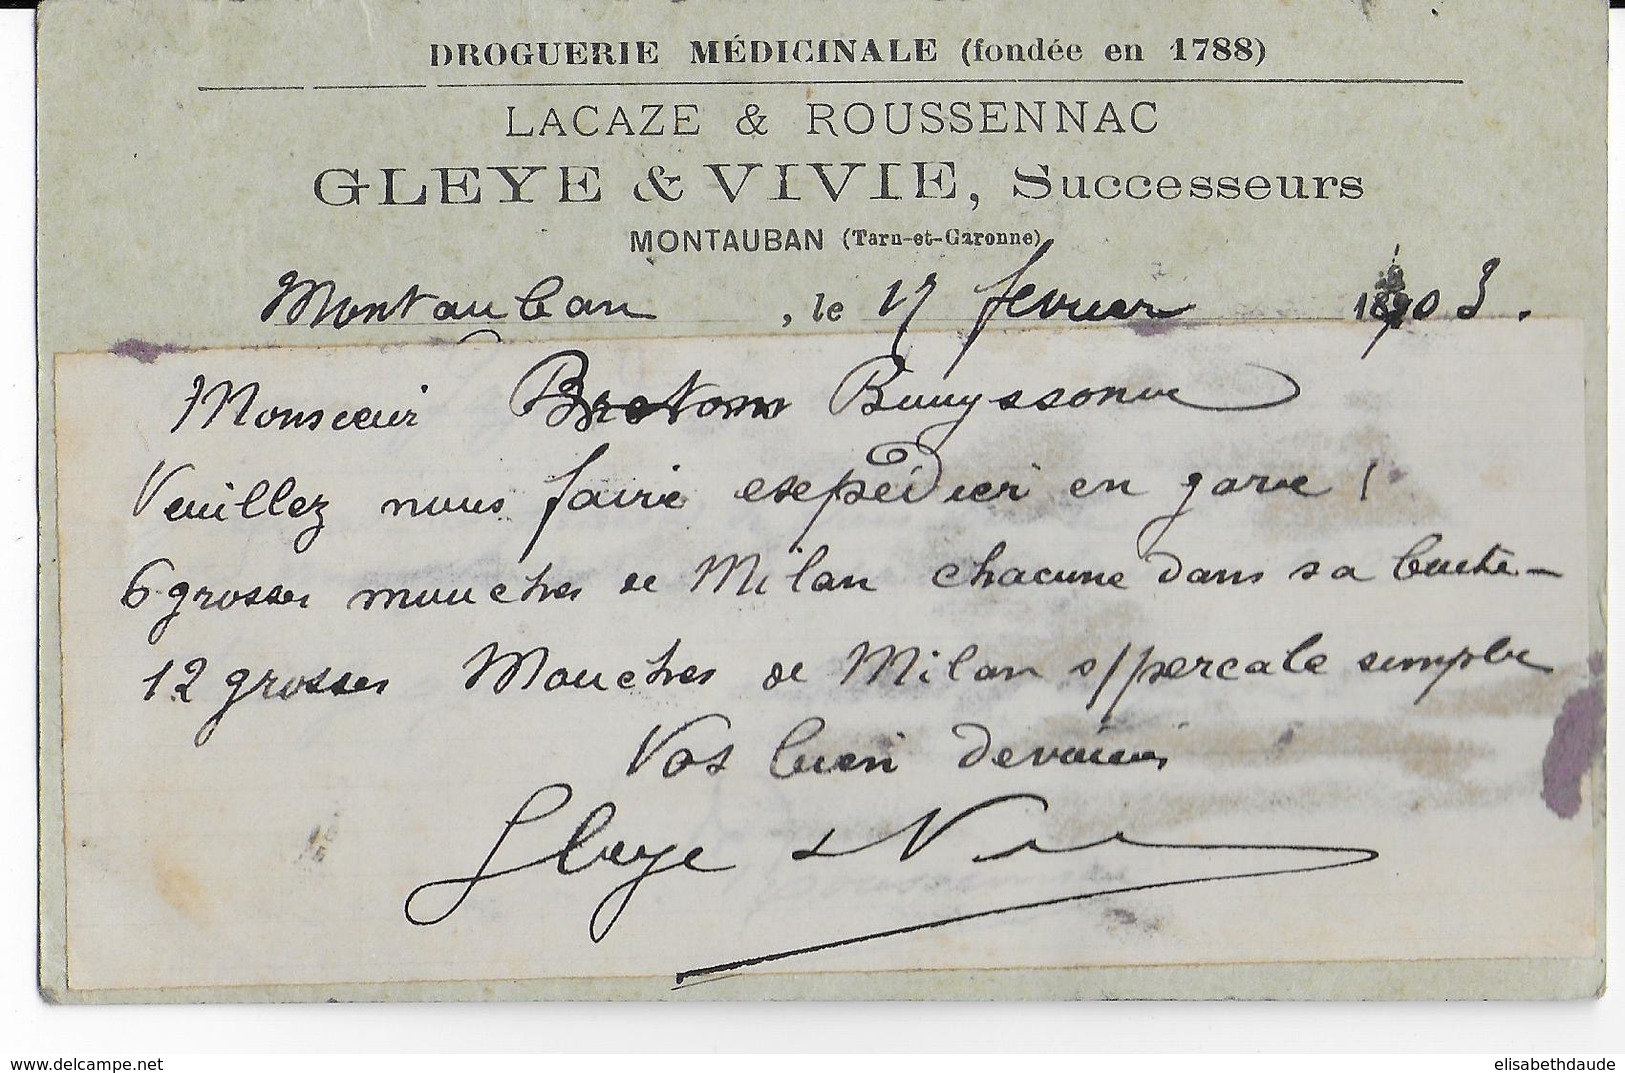 DROGUERIE MÉDICINALE (fondée en 1788)
LACAZE & ROUSSENNAC
GLEYE & VIVIE, Successeurs
MONTAUBAN (Tarn-et-Garonne)
Montauban, le 17 fevrier 1903.
Monsieur Breton Bouyssonie
Veuillez nous faire expédier en gare !
6 grosses mouches de Milan chacune dans sa boite -
12 grosses Mouches de Milan s/percale simple
Vos bien devoués
Gleye & Vivie
delcampe.net
elisabethdaude